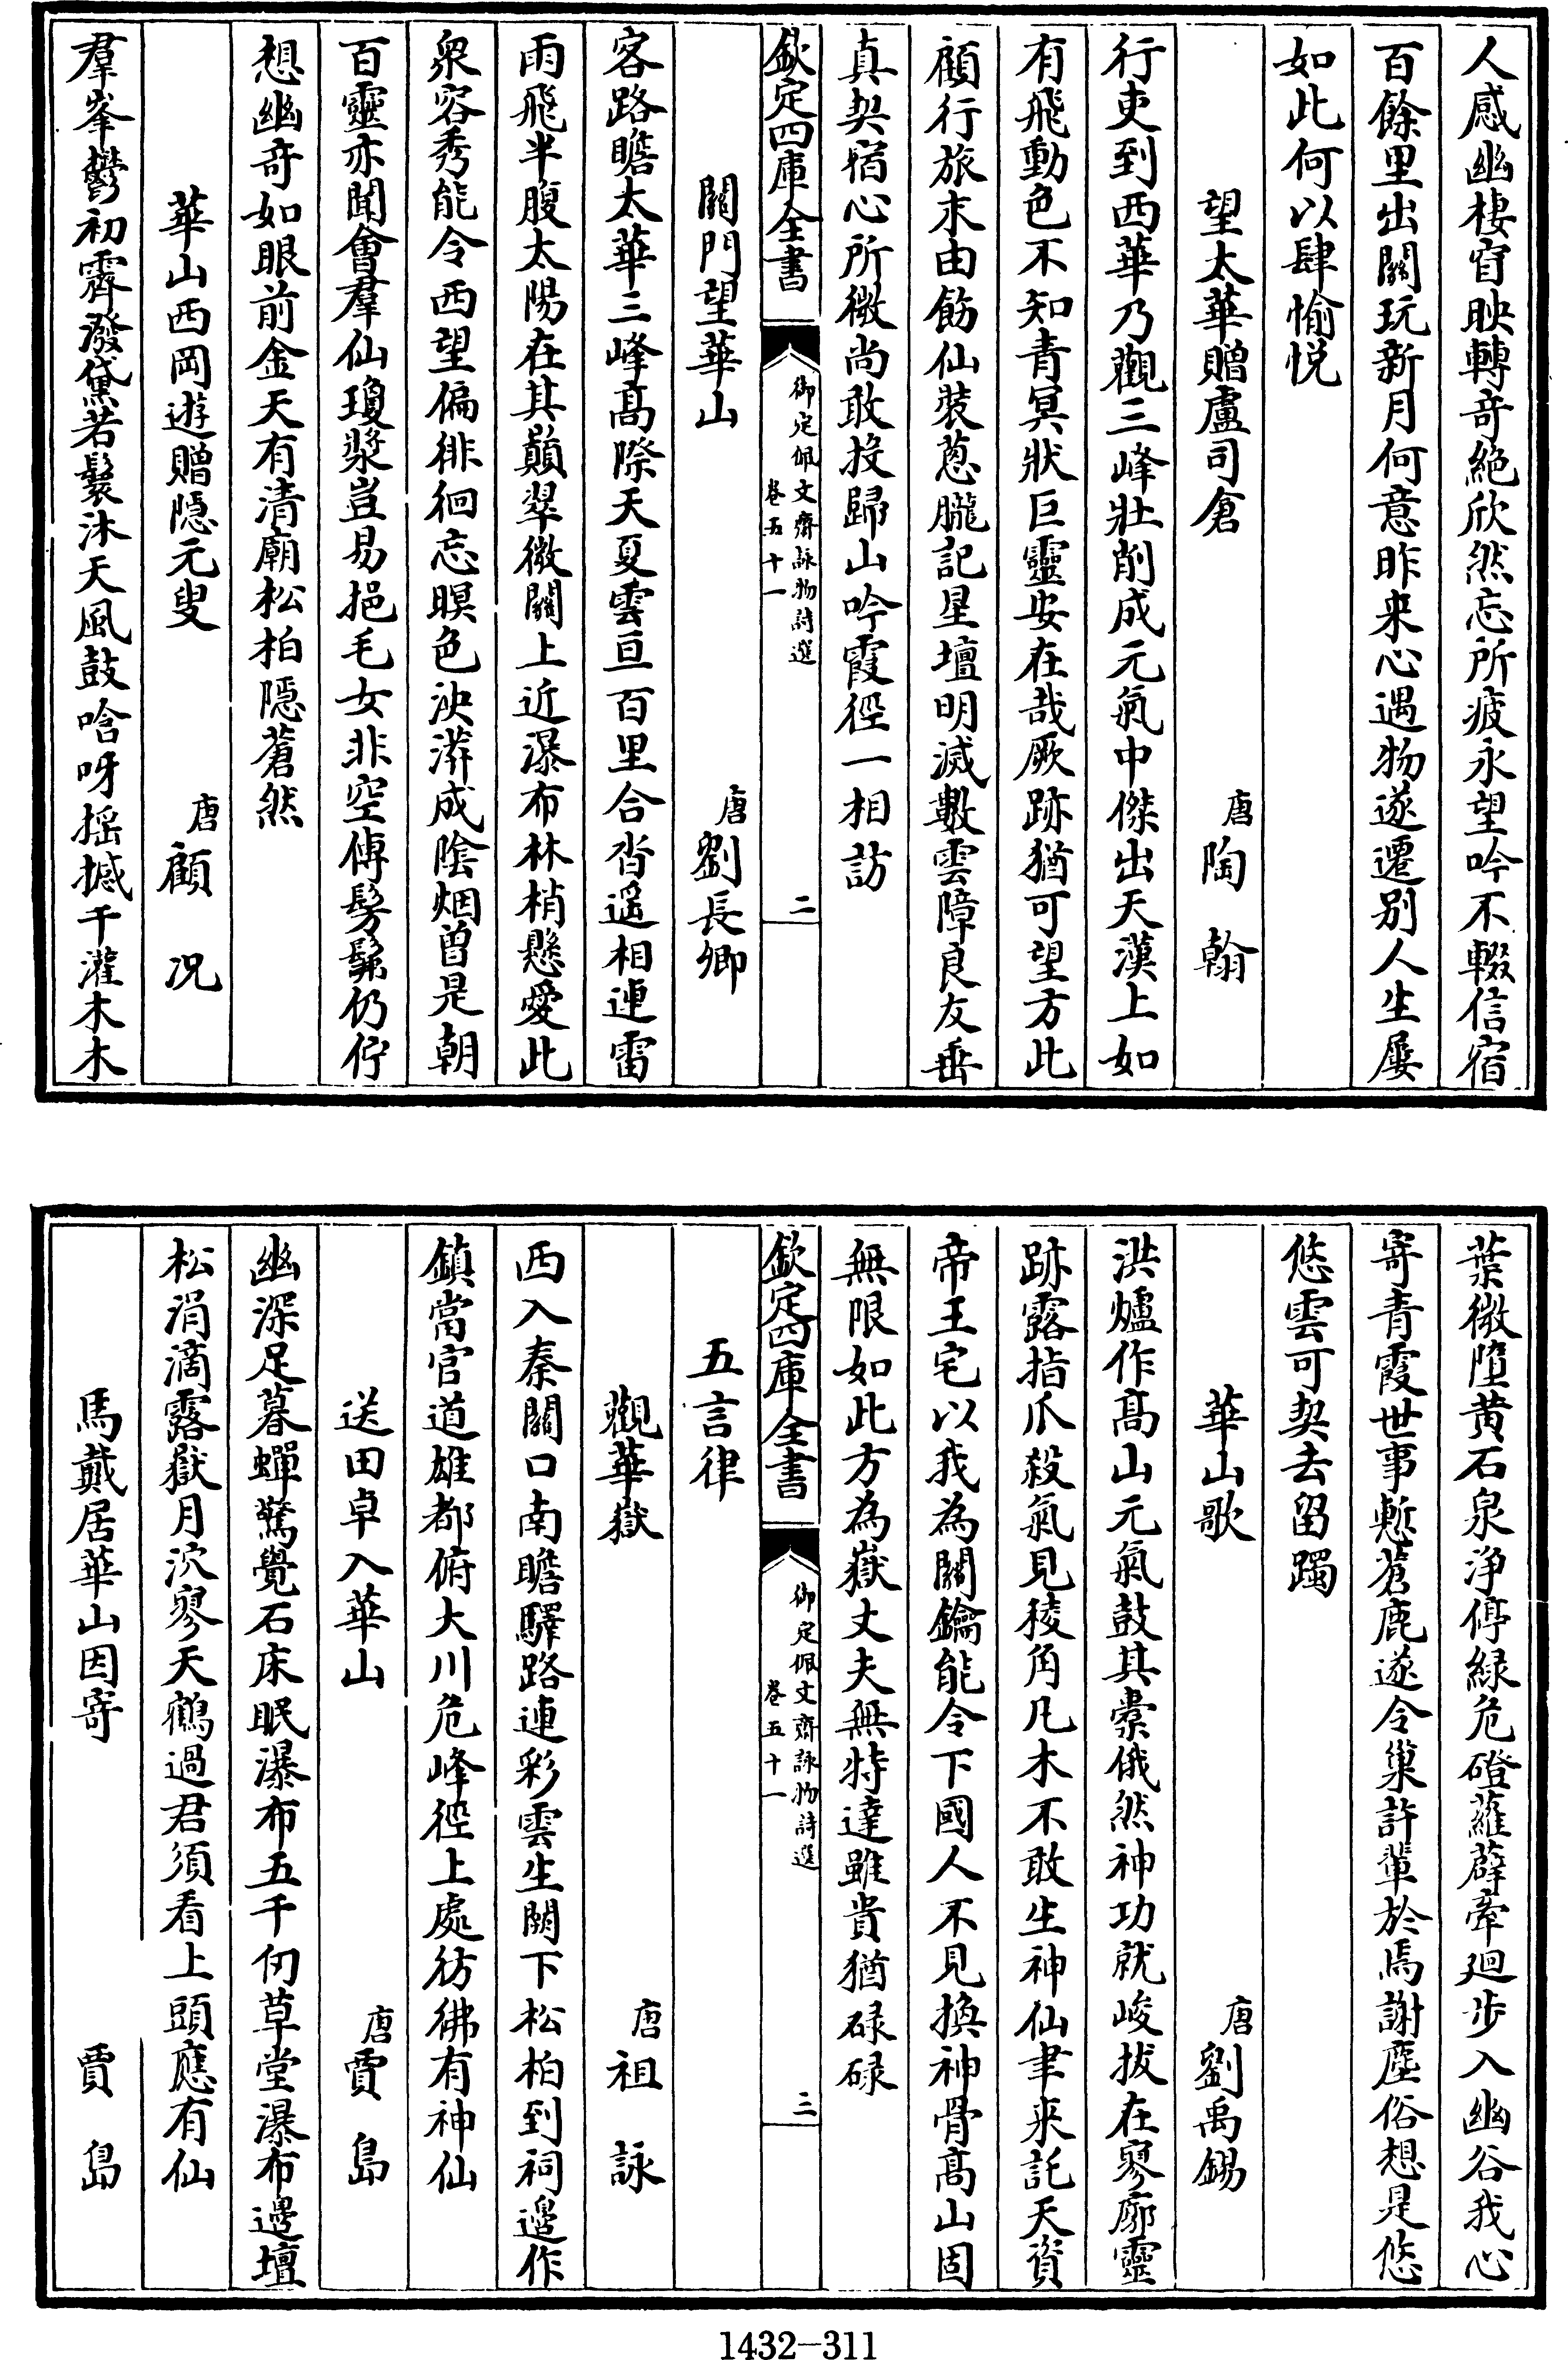 人感幽棲窅映轉奇絶欣然忘所疲永望吟不輟信宿
百餘里出關玩新月何意昨来心遇物遂遷别人生屡
如此何以肆愉悦
望太華贈盧司倉 唐 陶翰
行吏到西華乃觀三峰壯削成元氣中傑出天漢上如
有飛動色不知青冥狀巨靈安在哉厥跡猶可望方此
顧行旅末由飭仙裝葱朧記星壇明滅數雲障良友垂
真契宿心所微尚敢投歸山吟霞徑一相訪
欽定四庫全書 御定佩文齋詠物詩選 卷五十一 二
關門望華山 唐 劉長卿
客路瞻太華三峰高際天夏雲亘百里合沓遥相連雷
雨飛半腹太陽在其巔翠微關上近瀑布林梢懸愛此
衆容秀能令西望偏徘徊忘暝色泱漭成陰烟曽是朝
百靈亦聞會羣仙瓊漿豈易挹毛女非空傳髣髴仍佇
想幽奇如眼前金天有清廟松柏隱蒼然
華山西岡遊贈隱元叟 唐 顧况
羣峯鬱初霽潑黛若鬟沐天風鼓唅呀摇撼千灌木木
葉微墮黄石泉淨停緑危磴蘿薜牽廻步入幽谷我心
寄青霞世事慙蒼鹿遂令巢許輩於焉謝塵俗想是悠
悠雲可契去留躅
華山歌 唐 劉禹錫
洪爐作高山元氣鼓其橐俄然神功就峻拔在寥廓靈
跡露指爪殺氣見稜角凡木不敢生神仙聿来託天資
帝王宅以我為關鑰能令下國人不見换神骨高山固
無限如此方為嶽丈夫無特達雖貴猶碌碌
欽定四庫全書 御定佩文齋詠物詩選 卷五十一 三
五言律
觀華嶽 唐 祖詠
西入秦關口南瞻驛路連彩雲生闕下松柏到祠邊作
鎮當官道雄都俯大川危峰徑上處彷彿有神仙
送田卓入華山 唐 賈島
幽深足暮蟬驚覺石床眠瀑布五千仞草堂瀑布邊壇
松涓滴露嶽月泬寥天鶴過君須看上頭應有仙
馬戴居華山因寄 賈島
1432-311